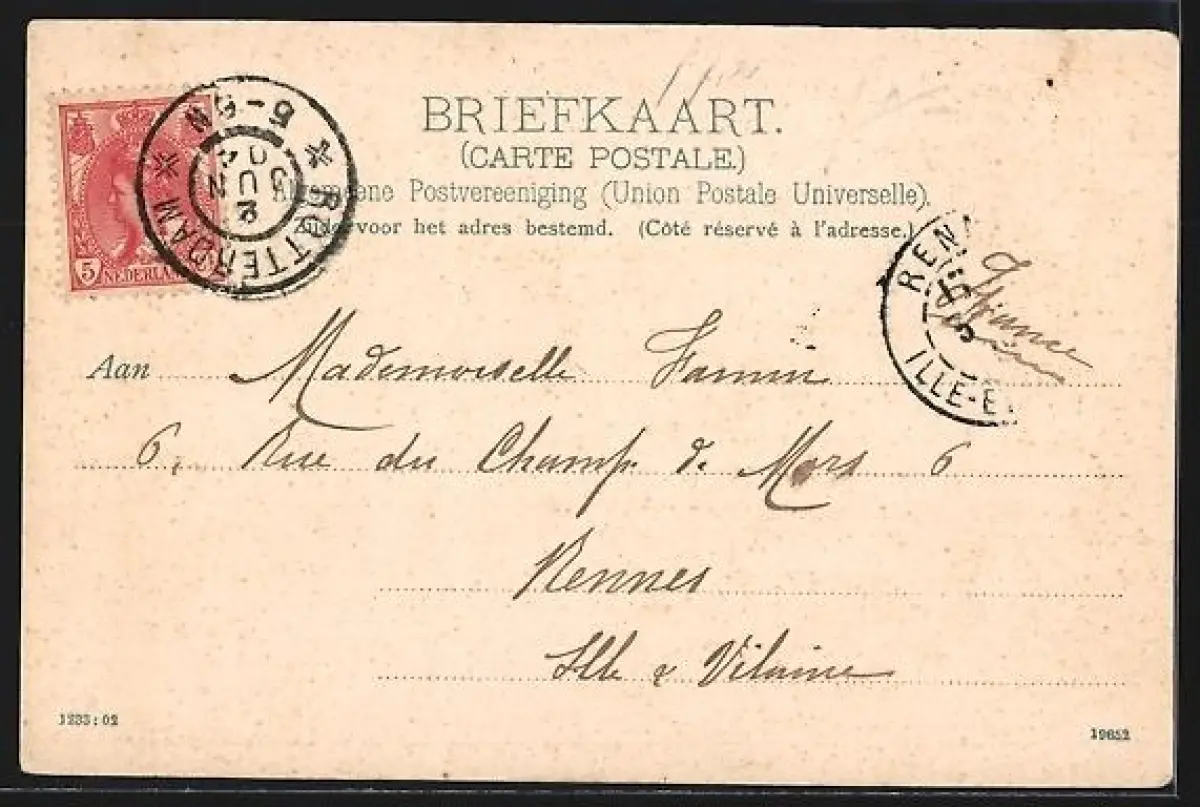 BRIEFKAART.
(CARTE POSTALE.)
Algemeene Postvereeniging (Union Postale Universelle).
voor het adres bestemd. (Côté réservé à l'adresse.)
5
NEDERLAN
ROTTERDAM
5-6N
2
JUN
04
REN
ILLE-E
France
Aan Mademoiselle
6, Rue du Champ de Mars 6
Rennes
Ille & Vilaine
1233:02
19652